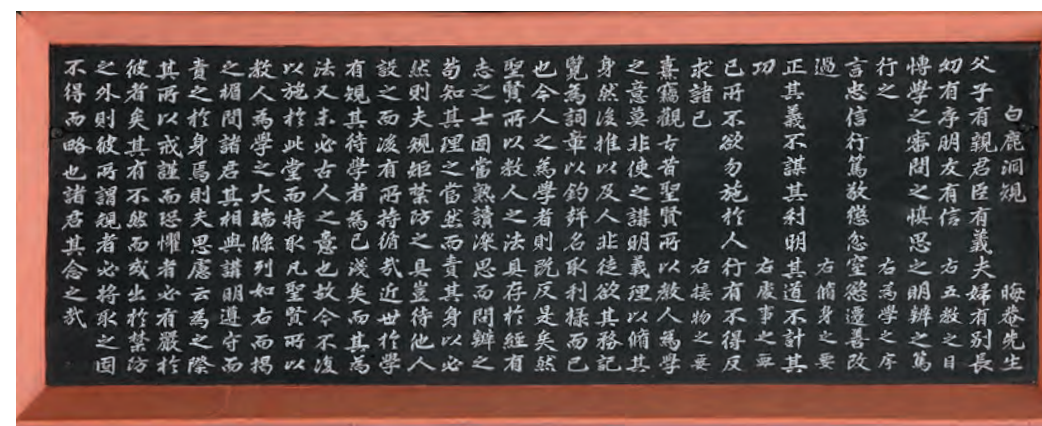 白鹿洞規 晦菴先生
父子有親君臣有義夫婦有別長
幼有序朋友有信 右五教之目
博學之審問之慎思之明辨之篤
行之 右為學之序
言忠信行篤敬懲忿窒慾遷善改
過 右脩身之要
正其義不謀其利明其道不計其
功 右處事之要
己所不欲勿施於人行有不得反
求諸己 右接物之要
熹竊觀古昔聖賢所以教人為學
之意莫非使之講明義理以脩其
身然後推以及人非徒欲其務記
覽為詞章以釣聲名取利祿而已
也今人之為學者則既反是矣然
聖賢所以教人之法具存於經有
志之士固當熟讀深思而問辨之
苟知其理之當然而責其身以必
然則夫規矩禁防之具豈待他人
設之而後有所持循哉近世於學
有規其待學者為已淺矣而其為
法又未必古人之意也故今不復
以施於此堂而特取凡聖賢所以
教人為學之大端條列如右而揭
之楣間諸君其相與講明遵守而
責之於身焉則夫思慮云為之際
其所以戒謹而恐懼者必有嚴於
彼者矣其有不然而或出於禁防
之外則彼所謂規者必將取之固
不得而略也諸君其念之哉